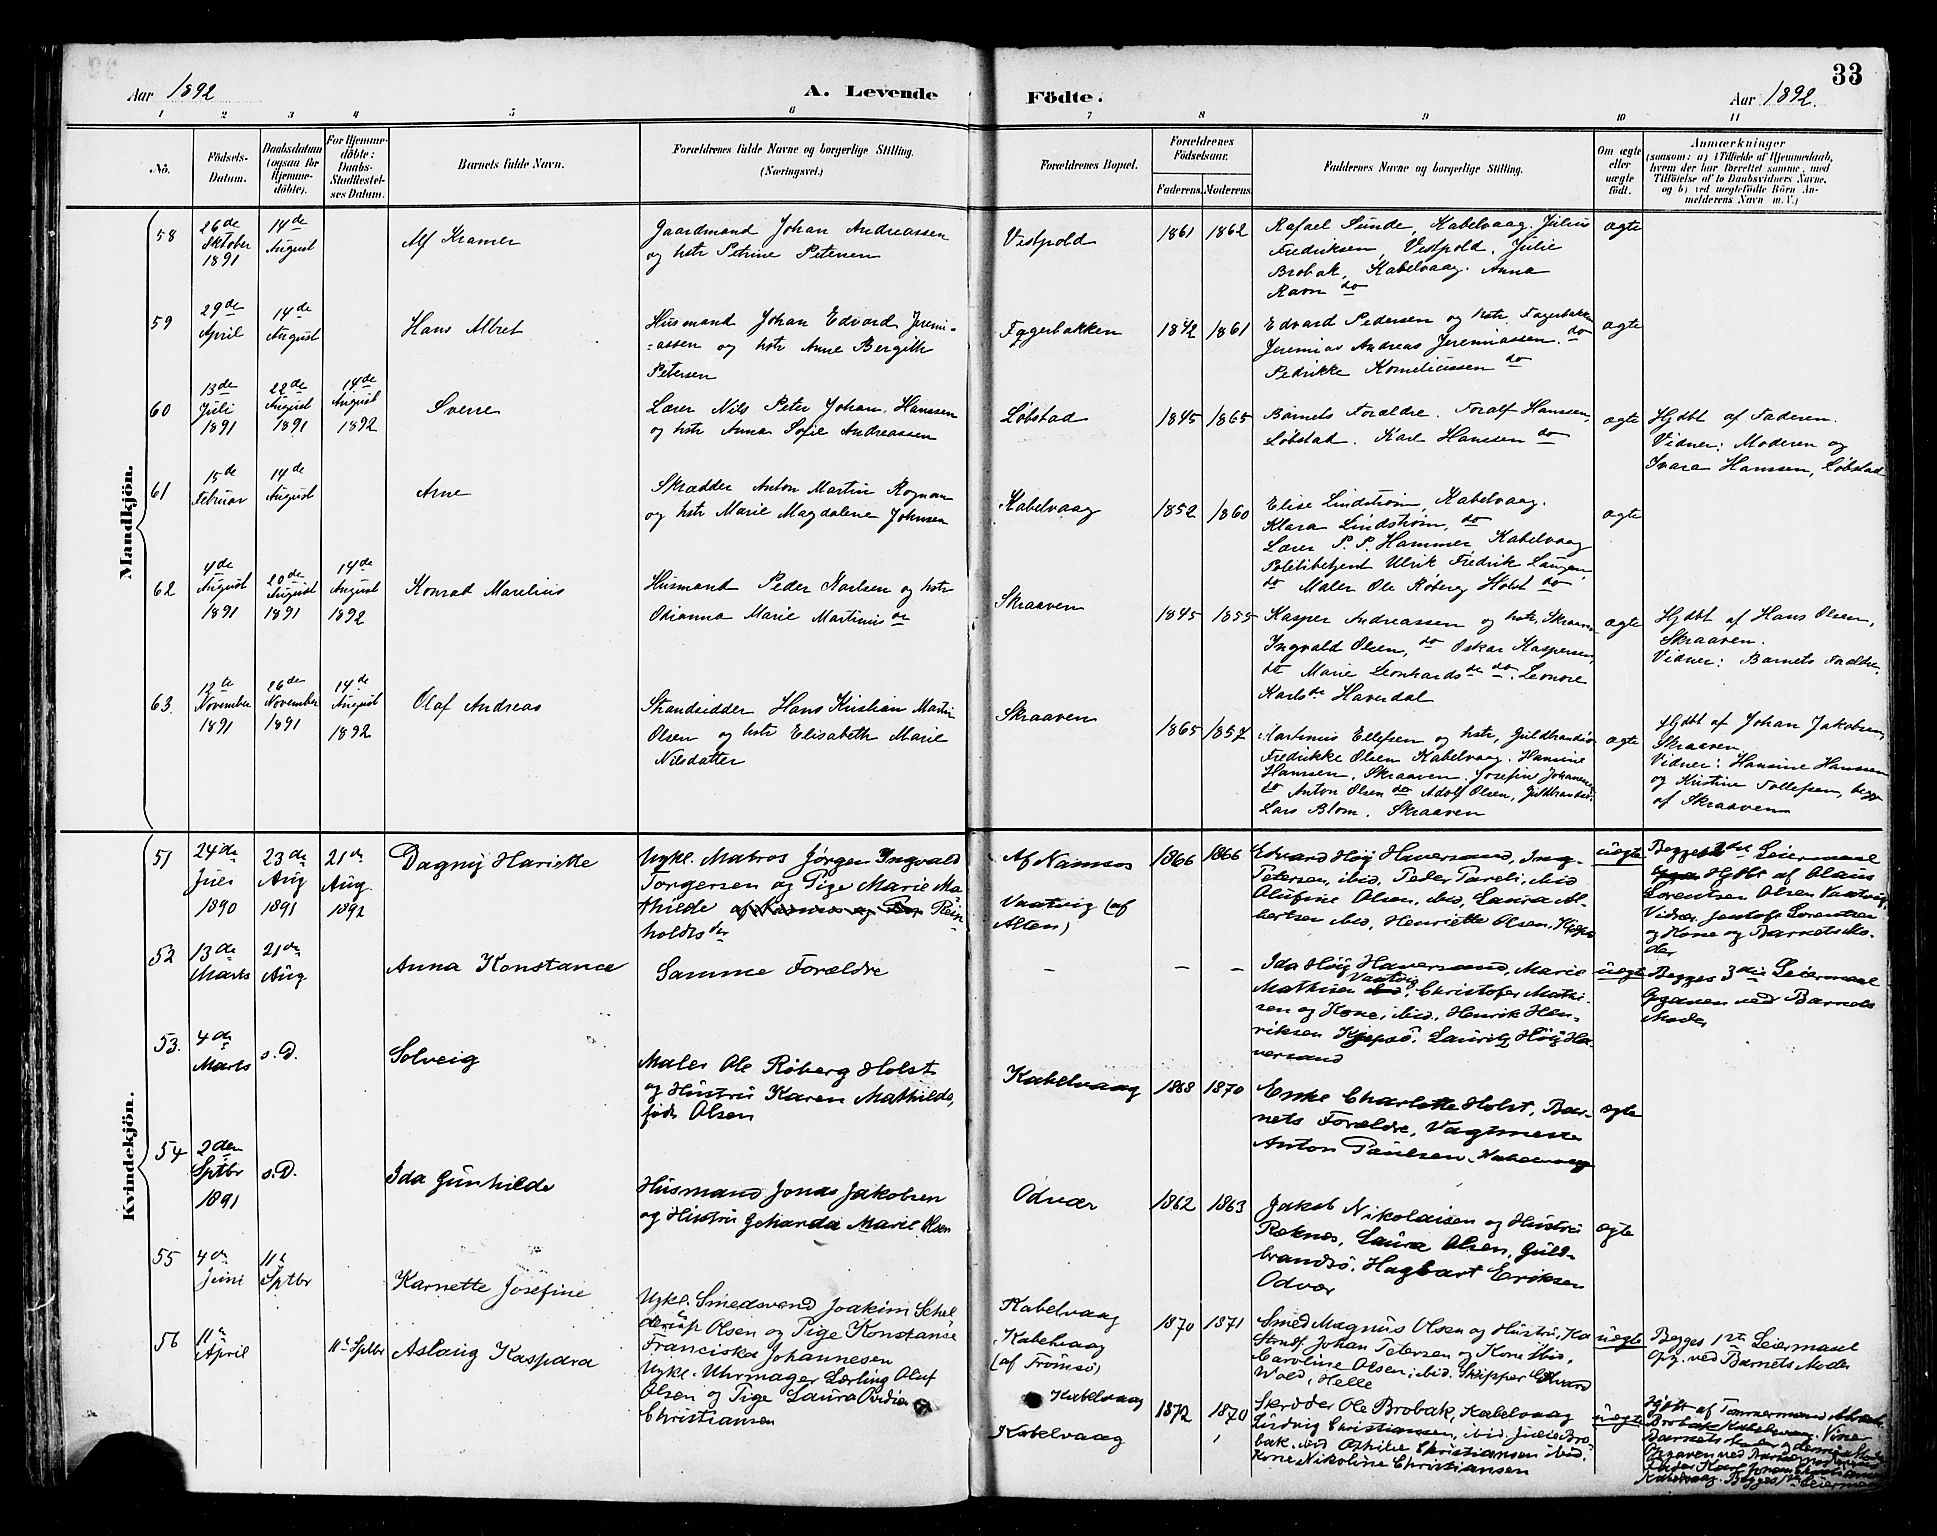 33
Aar 1892 A. Levende Födte. Aar 1892.
1 2 3 4 5 6 7 8 9 10 11
Nö.
Födsels-
Datum.
Daabsdatum
(ogsaa for
Hjemme-
döbte).
For Hjemme-
döbte:
Daabs-
Stadfæstel-
ses Datum.
Barnets fulde Navn.
Forældrenes fulde Navne og borgerlige Stilling.
(Næringsvei.)
Forældrenes Bopæl.
Forældrenes
Födselsaar.
Faderens. Moderens.
Faddernes Navne og borgerlige Stilling.
Om ægte
eller
uægte
födt.
Anmærkninger
(saasom: a) i Tilfælde af Hjemmedaab,
hvem der har forrettet samme, med
Tilföielse af to Daabsvidners Navne,
og b) ved uægtefödte Börn An-
melderens Navn m. V.)
Mandkjön.
58
26de
Oktober
1891
14de
August
Alf Kramer
Gaardmand Johan Andreassen
og hstr Petrine Petersen
Vestpold
1861 1862
Rafael Sunde, Kabelvaag. Julius
Fredriksen, Vestpold. Julie
Brobak, Kabelvaag. Anna
Ravn do
ægte
59
29de
April
14de
August
Hans Albret
Husmand Johan Edvard Jeremi-
assen og hstr Anne Bergith
Petersen
Fagerbakken
1842 1861
Edvard Pedersen og hstr. Fagerbakken
Jeremias Andreas Jeremiassen. do
Pedrikke Korneliussen do
ægte
60
13de
Juli
1891
22de
August
1891
14de
August
1892
Sverre
Lærer Nils Peter Johan Hanssen
og hstr Anna Sofie Andreassen
Løbstad
1845 1865
Barnets Forældre. Toralf Hanssen,
Løbstad. Karl Hanssen do
ægte
Hjdbt af Faderen.
Vidner: Moderen og
Ivara Hanssen, Løbstad
61
15de
Februar
14de
August
Arne
Skrædder Anton Martin Rognan
og hstr Marie Magdalene Johnsen
Kabelvaag
1852 1860
Elise Lindstrøm, Kabelvaag.
Klara Lindstrøm, do
Lærer P. P. Hammer, Kabelvaag
Politibetjent Ulrik Fredrik Langen
do Maler Ole Røberg Holst do
ægte
62
4de
August
1891
20de
August
1891
14de
August
1892
Konrad Marelius
Husmand Peder Karlsen og hstr
Odianna Marie Martinusdr
Skraaven
1845 1855
Kasper Andreassen og hstr, Skraaven
Ingvald Olsen, do Oskar Kaspersen,
do Marie Leonhardsdr do. Leonore
Karlsdr Haverdal
ægte
Hjdbt af Hans Olsen,
Skraaven.
Vidner: Barnets Forældre.
63.
12te
November
1891
26de
November
1891
14de
August
1892
Olaf Andreas
Strandsidder Hans Kristian Martin
Olsen og hstr Elisabeth Marie
Nilsdatter
Skraaven
1865 1857
Martinus Ellefsen og hstr, Guldbrandsø
Fredrikke Olsen Kabelvaag. Hansine
Hanssen, Skraaven. Josefine Johansen
do Anton Olsen do Adolf Olsen, Guldbrandsø.
Lars Blom. Skraaven
ægte
Hjdbt af Johan Jakobsen,
Skraaven.
Vidner: Hansine Hanssen
og Kristine Tollefsen, begge
af Skraaven
Kvindekjön.
51
24de
Juli
1890
23de
Aug
1891
21de
Aug.
1892
Dagny Hariette
Ugkl. Matros Jørgen Ingvald
Torgersen og Pige Marie Ma-
thilde Rein-
holdtsdtr
Af Namsos
Vaatvig (af
Alten)
1866 1866
Edvard Høg Haversand, Ing-
Petersen, ibid, Peder Pareli, ibid
Olufine Olsen, ibid, Laura Al-
bertsen ibid, Henriette Olsen, Kjeøsø
uægte
Begges 2det Leiermaal
Hjdbt af Olaus
Lorentsen Olsen Vaatvig,
Vidner Jentoft Lorentzen
og Kone og Barnets Mo-
der
52
13de
Marts
21de
Aug
Anna Konstance
Samme Forældre
– – –
Ida Høg Haversand, Marie
Mathisen Vaatvig, Christofer Mathi-
sen og Kone, ibid, Henrik Hen-
riksen Kjeøsø, Lauritz Høg Ha-
versand
uægte
Begges 3die Leiermaal
Opgaven ved Barnets
Moder
53.
4de
Marts
s. D.
Solveig
Maler Ole Røberg Holst
og Hustru Karen Mathilde,
født Olsen
Kabelvaag
1868 1870
Enke Charlotte Holst, Bar-
nets Forældre, Vagtmester
Anton Paulsen, Kabelvaag
ægte
54
2den
Sptbr
1891
s. D.
Ida Gunhilde
Husmand Jonas Jakobsen
og Hustru Geharda Marie Olsen
Odvær
1862 1863
Jakob Nikolaisen og Hustru
Reknes, Laura Olsen, Guld-
brandsø. Hagbart Eriksen
Odvær
ægte
55
4de
Juni
11te
Sptbr
Karnette Josefine
Ugkl. Smedsvend Joakim Schel
derup Olsen og Pige Konstanse
Franciska Johannesen
Kabelvaag
Kabelvaag
(af Tromsø)
1870 1871
Smed Magnus Olsen og Hustru, Ka
Johan Petersen og Kone ibid,
Caroline Olsen, ibid. Skipper Edvard
Wold, Helle
uægte
Begges 1ste Leiermaal
Opg. ved Barnets Moder
56
11te
April
11te Sptbr
Aslaug Kaspara
Ugkl. Uhrmager Lærling Oluf
Olsen og Pige Laura Ovidia
Christiansen
Kabelvaag
Kabelvaag
1872 1870
Skrædder Ole Brobak, Kabelvaag
Ludvig Christiansen, ibid. Julie Bro-
bak, ibid Othilie Christiansen ibid.
Kone Nikoline Christiansen
uægte
Hjdbt af Tømmermand
Brobak Kabelvaag.
Barnets
Opgaven ved Barnets
Kabelvaag. Begges 1ste Leiermaal